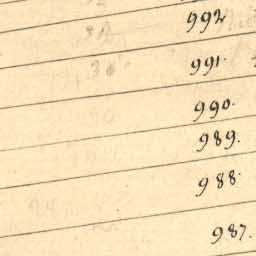 992
991.
990.
989.
988.
987.